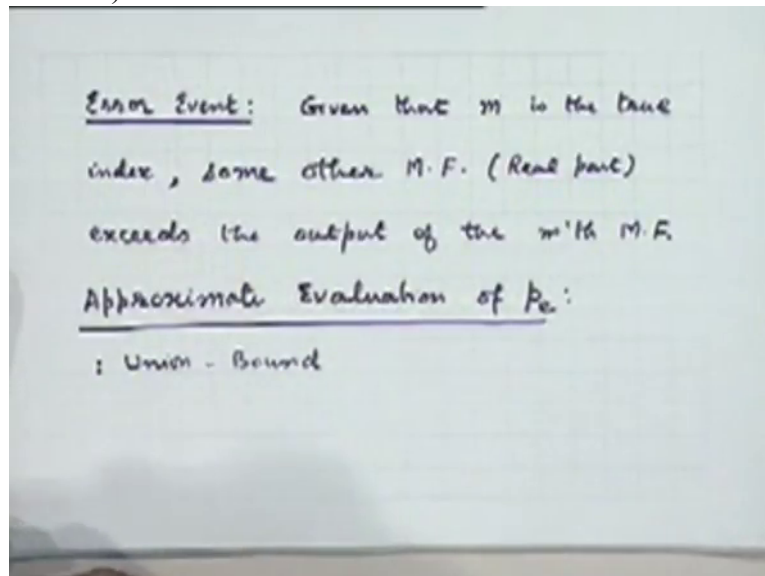 Error Event: Given that m is the true
index, some other M.F. (Real part)
exceeds the output of the m'th M.F.
Approximate Evaluation of Pe:
: Union - Bound